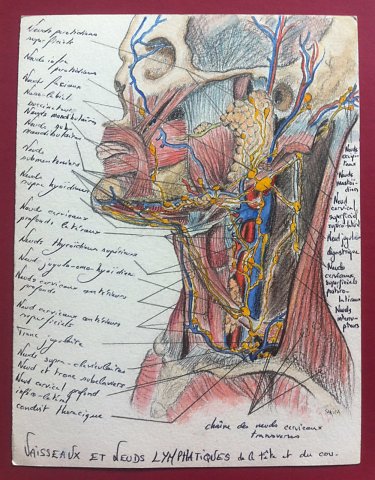 Nœuds parotidiens
superficiels
Nœuds infra
parotidiens
Nœuds faciaux
Naso-labial
Nœuds mandibulaires
Nœuds sub
mandibulaires
Nœuds
submentaux
Nœuds
supra hyoïdiens
Nœud cervicaux
profonds latéraux
Nœuds Thyroïdiens supérieurs
Nœud jugulo-omo-hyoïdien
Nœuds cervicaux antérieurs
profonds
Nœud cervicaux antérieurs
superficiels
Tronc jugulaire
Nœuds supra-claviculaires
Nœud et tronc subclaviers
Nœud cervical profond
infero-latéral
conduit Thoracique
Nœuds
occipi-
taux
Nœuds
mastoï-
diens
Nœud
cervical
superficiel
Nœud jugulo
digastrique
Nœuds
cervicaux
superficiels
latéraux
Nœuds
chaîne des nœuds cervicaux
transverses
VAISSEAUX ET NŒUDS LYMPHATIQUES de la tête et du cou.